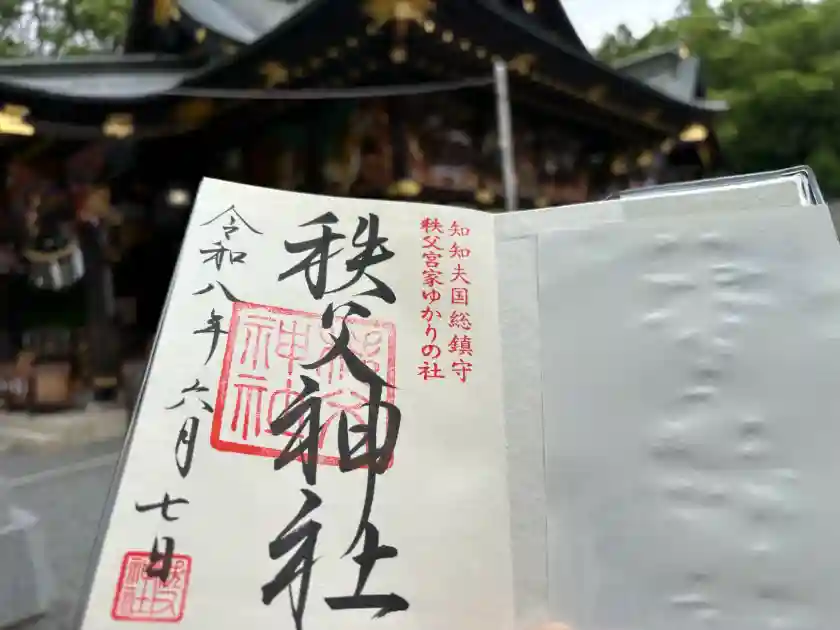 知知夫国総鎮守
秩父宮家ゆかりの社
秩父神社
令和八年六月七日
秩父
神社
秩父
神社